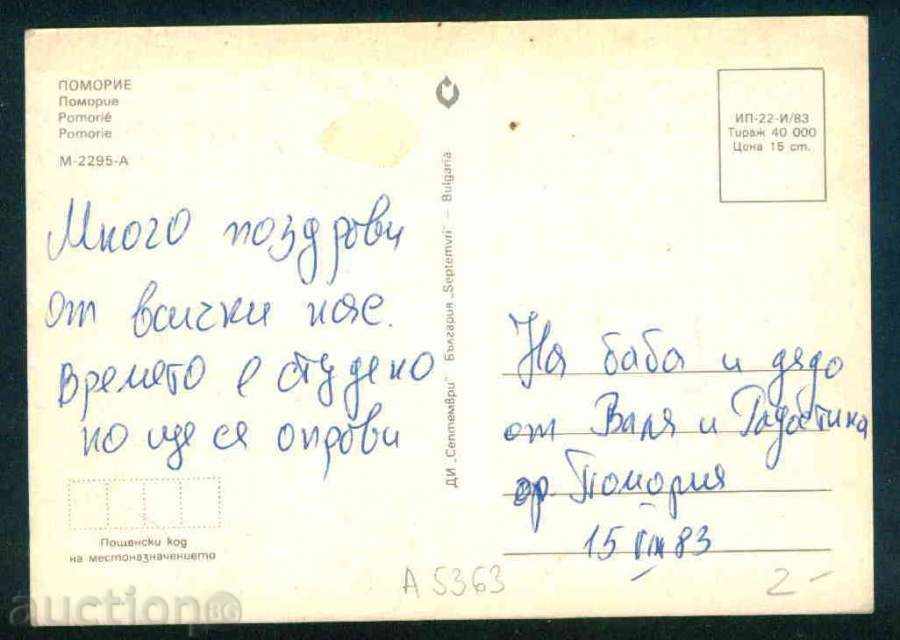 ПОМОРИЕ
Поморие
Pomorié
Pomorie
М-2295-А
Много поздрави
от всички нас.
Времето е студено
но ще се оправи
Пощенски код
на местоназначението
ДИ „Септември" – България „Septemvri" – Bulgaria
ИП-22-И/83
Тираж 40 000
Цена 15 ст.
На баба и дядо
от Валя и Радостина
гр. Помория
15 VIII 83
A 5363
2-
auction BG